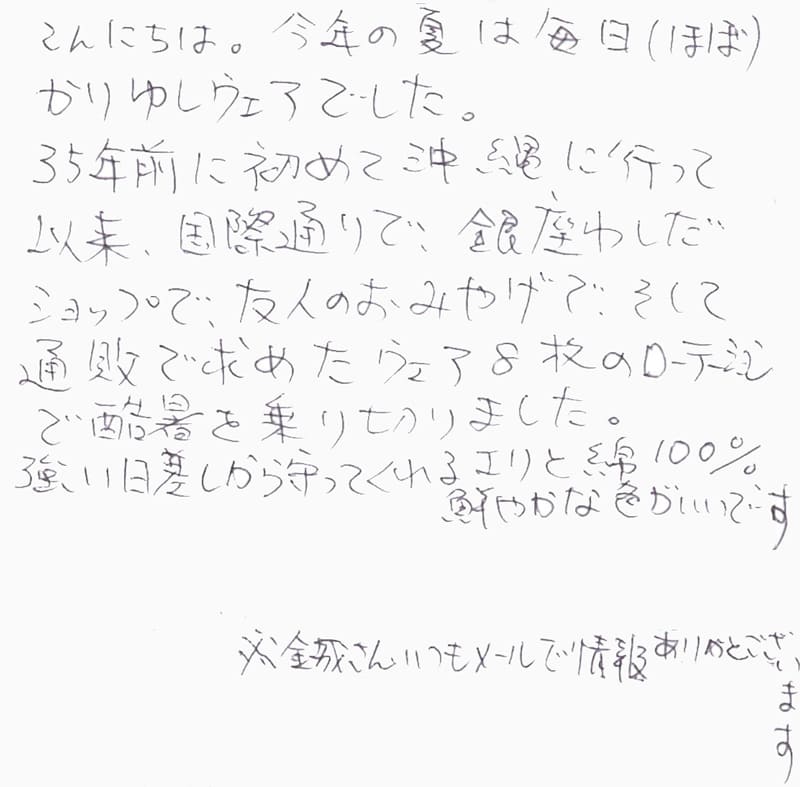 こんにちは。今年の夏は毎日(ほぼ)
かりゆしウェアでした。
35年前に初めて沖縄に行って
以来、国際通りで、銀座わしだ
ショップで、友人のおみやげで、そして
通販で求めたウェア8枚のローテーション
で酷暑を乗り切りました。
強い日差しから守ってくれるエリと綿100%
鮮やかな色がいいです
※金城さんいつもメールで情報ありがとうございます